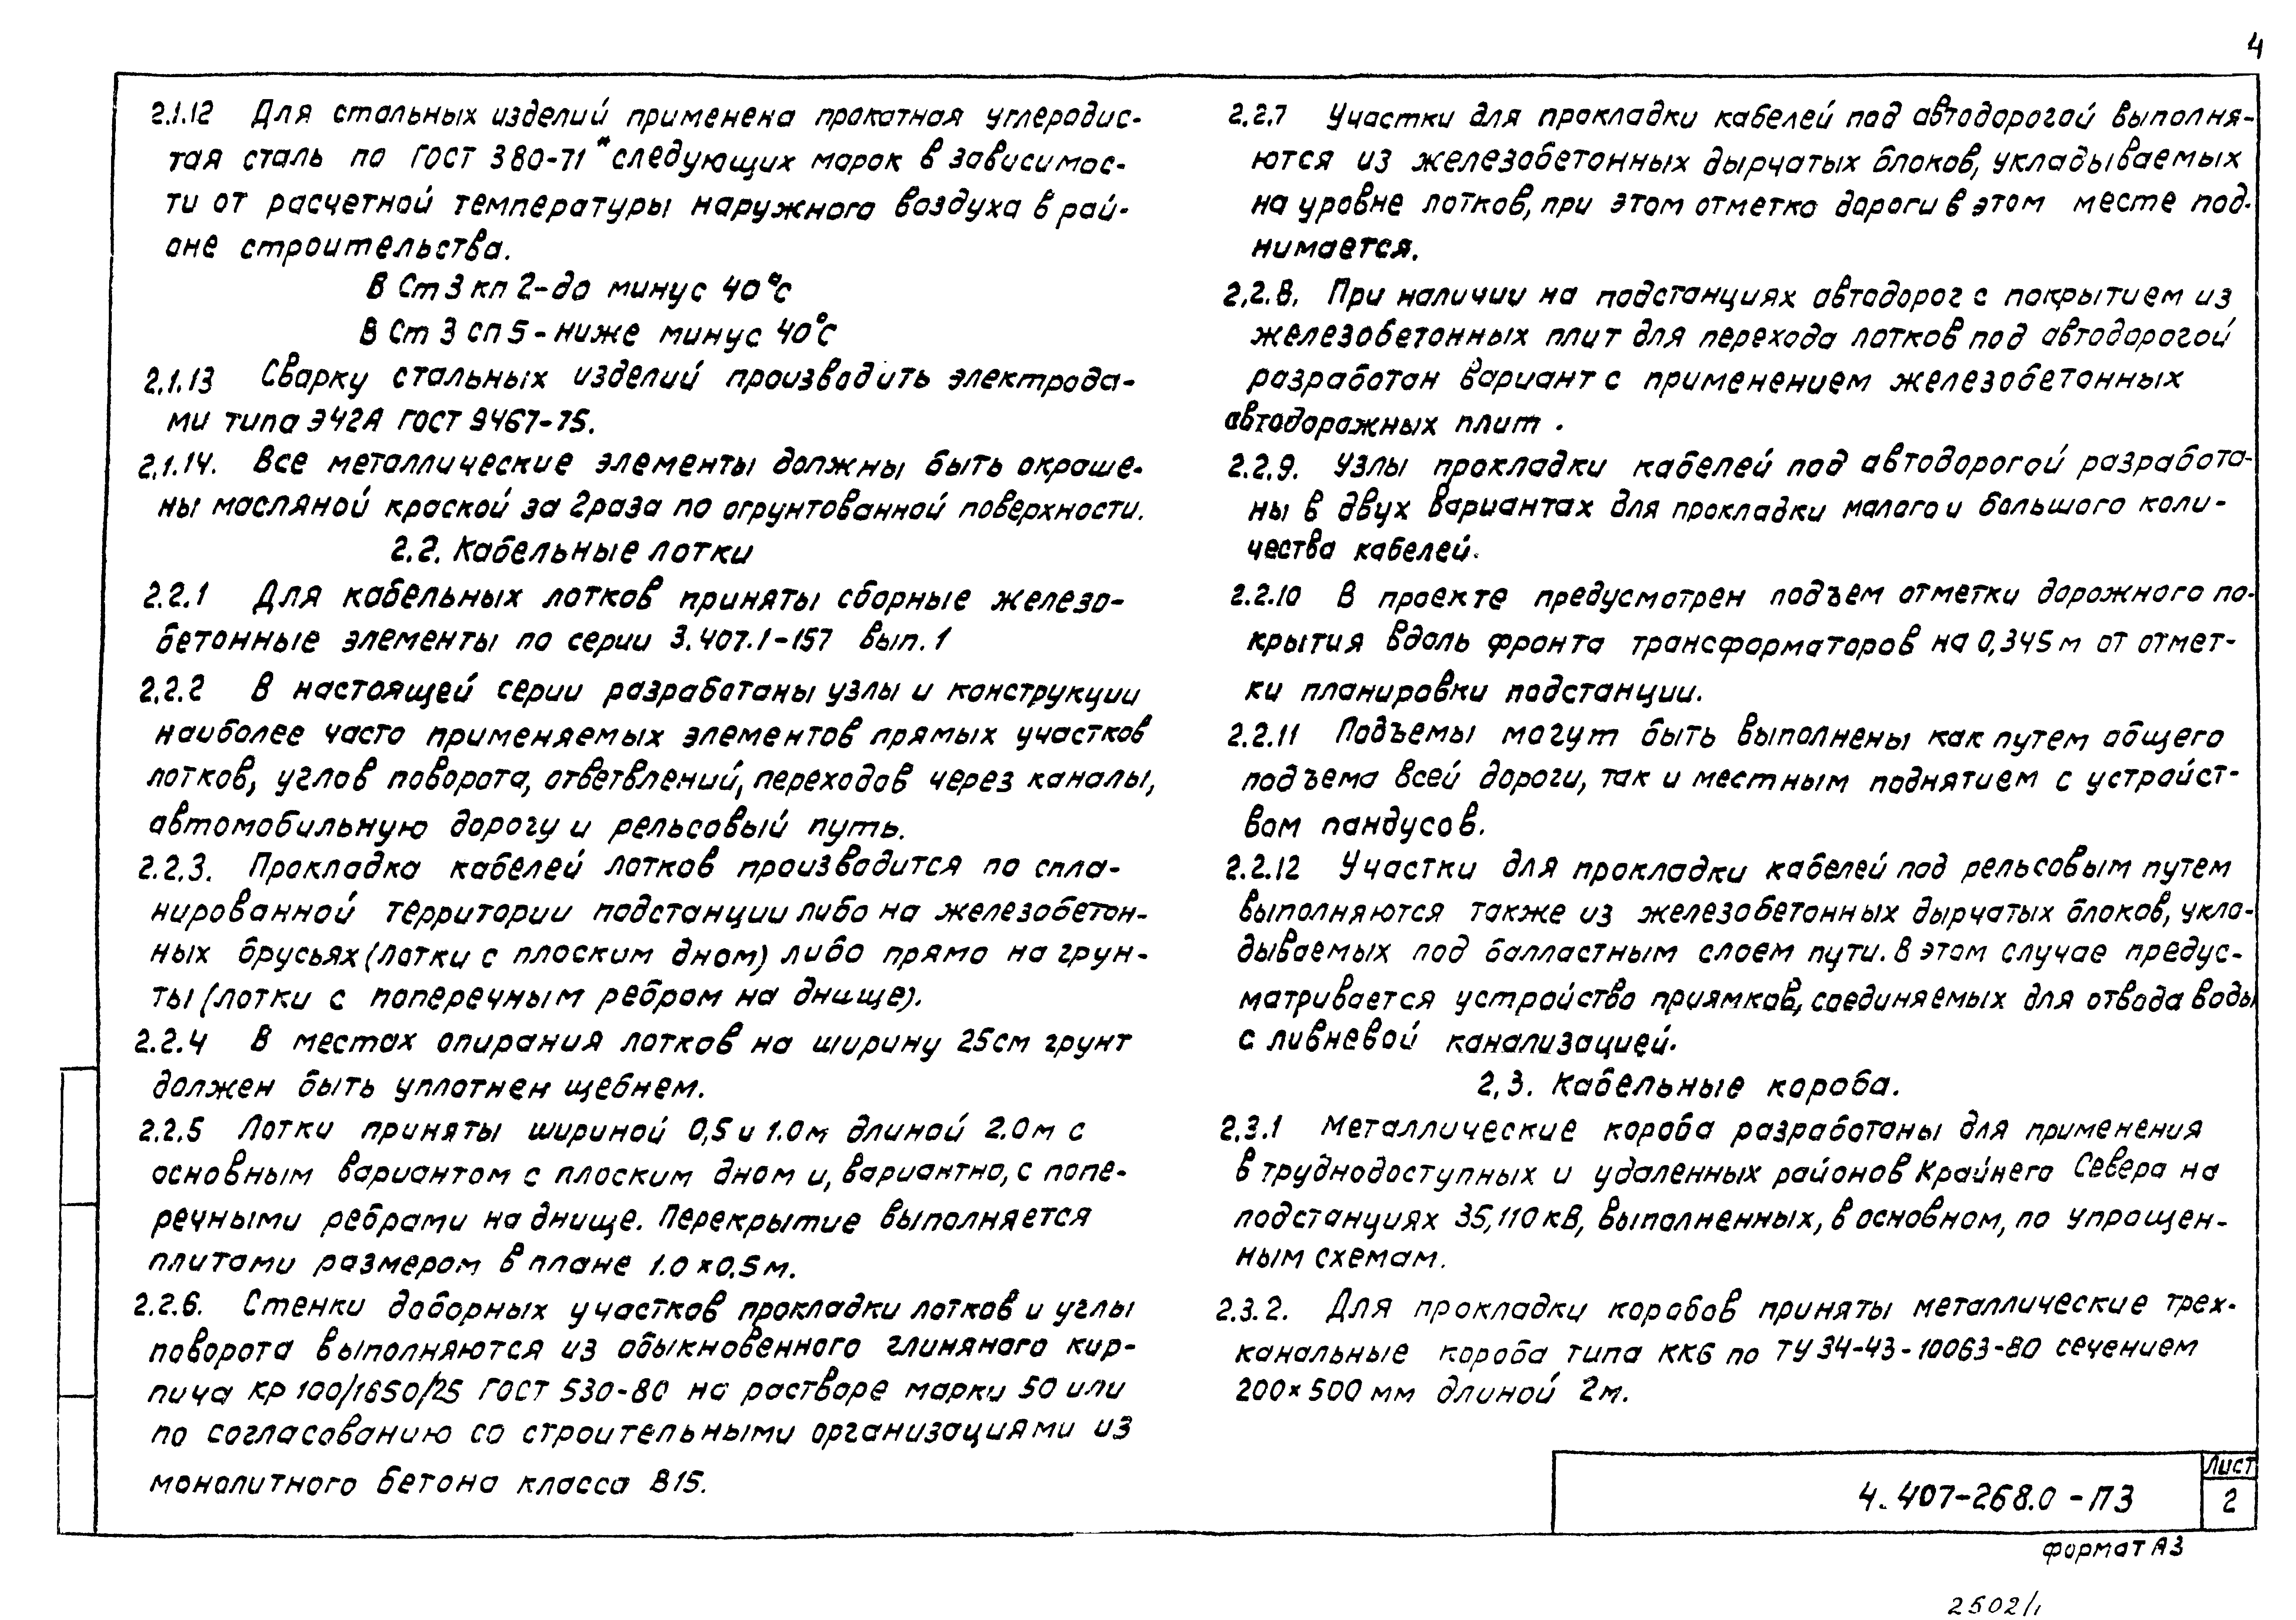 4
2.1.12 Для стальных изделий применена прокатная углеродис-
тая сталь по ГОСТ 380-71* следующих марок в зависимос-
ти от расчетной температуры наружного воздуха в рай-
оне строительства.
В Ст 3 кп 2 - до минус 40°с
В Ст 3 сп 5 - ниже минус 40°с
2.1.13 Сварку стальных изделий производить электрода-
ми типа Э42А ГОСТ 9467-75.
2.1.14. Все металлические элементы должны быть окраше-
ны масляной краской за 2 раза по огрунтованной поверхности.
2.2. Кабельные лотки
2.2.1 Для кабельных лотков приняты сборные железо-
бетонные элементы по серии 3.407.1-157 вып. 1
2.2.2 В настоящей серии разработаны узлы и конструкции
наиболее часто применяемых элементов прямых участков
лотков, углов поворота, ответвлений, переходов через каналы,
автомобильную дорогу и рельсовый путь.
2.2.3. Прокладка кабелей лотков производится по спла-
нированной территории подстанции либо на железобетон-
ных брусьях (лотки с плоским дном) либо прямо на грун-
ты (лотки с поперечным ребром на днище).
2.2.4 В местах опирания лотков на ширину 25см грунт
должен быть уплотнен щебнем.
2.2.5 Лотки приняты шириной 0,5 и 1.0м длиной 2.0м с
основным вариантом с плоским дном и, вариантно, с попе-
речными ребрами на днище. Перекрытие выполняется
плитами размером в плане 1.0×0.5м.
2.2.6. Стенки доборных участков прокладки лотков и углы
поворота выполняются из обыкновенного глиняного кир-
пича КР 100/1650/25 ГОСТ 530-80 на растворе марки 50 или
по согласованию со строительными организациями из
монолитного бетона класса В15.
2.2.7 Участки для прокладки кабелей под автодорогой выполня-
ются из железобетонных дырчатых блоков, укладываемых
на уровне лотков, при этом отметка дороги в этом месте под-
нимается.
2.2.8. При наличии на подстанциях автодорог с покрытием из
железобетонных плит для перехода лотков под автодорогой
разработан вариант с применением железобетонных
автодорожных плит .
2.2.9. Узлы прокладки кабелей под автодорогой разработа-
ны в двух вариантах для прокладки малого и большого коли-
чества кабелей.
2.2.10 В проекте предусмотрен подъем отметки дорожного по-
крытия вдоль фронта трансформаторов на 0,345м от отмет-
ки планировки подстанции.
2.2.11 Подъемы могут быть выполнены как путем общего
подъема всей дороги, так и местным поднятием с устройст-
вом пандусов.
2.2.12 Участки для прокладки кабелей под рельсовым путем
выполняются также из железобетонных дырчатых блоков, укла-
дываемых под балластным слоем пути. В этом случае предус-
матривается устройство приямков, соединяемых для отвода воды
с ливневой канализацией.
2.3. Кабельные короба.
2.3.1 Металлические короба разработаны для применения
в труднодоступных и удаленных районов Крайнего Севера на
подстанциях 35,110кВ, выполненных, в основном, по упрощен-
ным схемам.
2.3.2. Для прокладки коробов приняты металлические трех-
канальные короба типа ККБ по ТУ 34-43-10063-80 сечением
200×500 мм длиной 2м.
4.407-268.0 -ПЗ
Лист
2
формат А3
2502/1